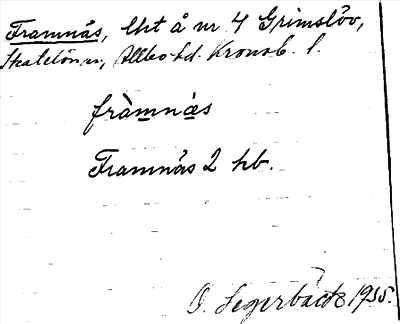 Framnäs, lht å nr 4 Grimslöv,
Skatelövs sn, Allbo hd. Kronob. l.
fràmnæs
Framnäs 2 hb.
O. Segerbäck 1935.